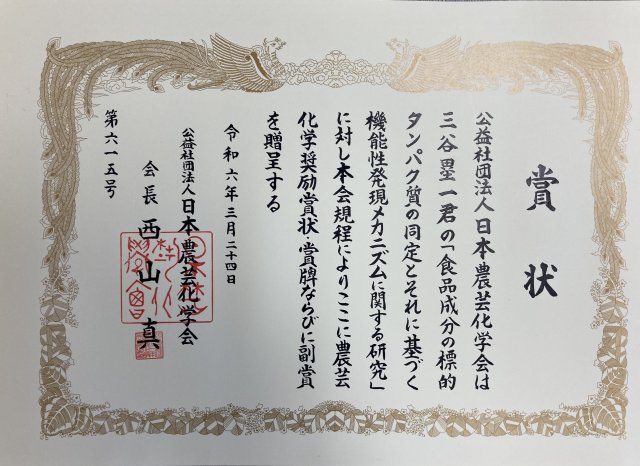 賞状
公益社団法人日本農芸化学会は
三谷塁一君の「食品成分の標的
タンパク質の同定とそれに基づく
機能性発現メカニズムに関する研究」
に対し本会規程によりここに農芸
化学奨励賞状・賞牌ならびに副賞
を贈呈する
令和六年三月二十四日
公益社団法人日本農芸化学会
会長 西山真
第六一五号